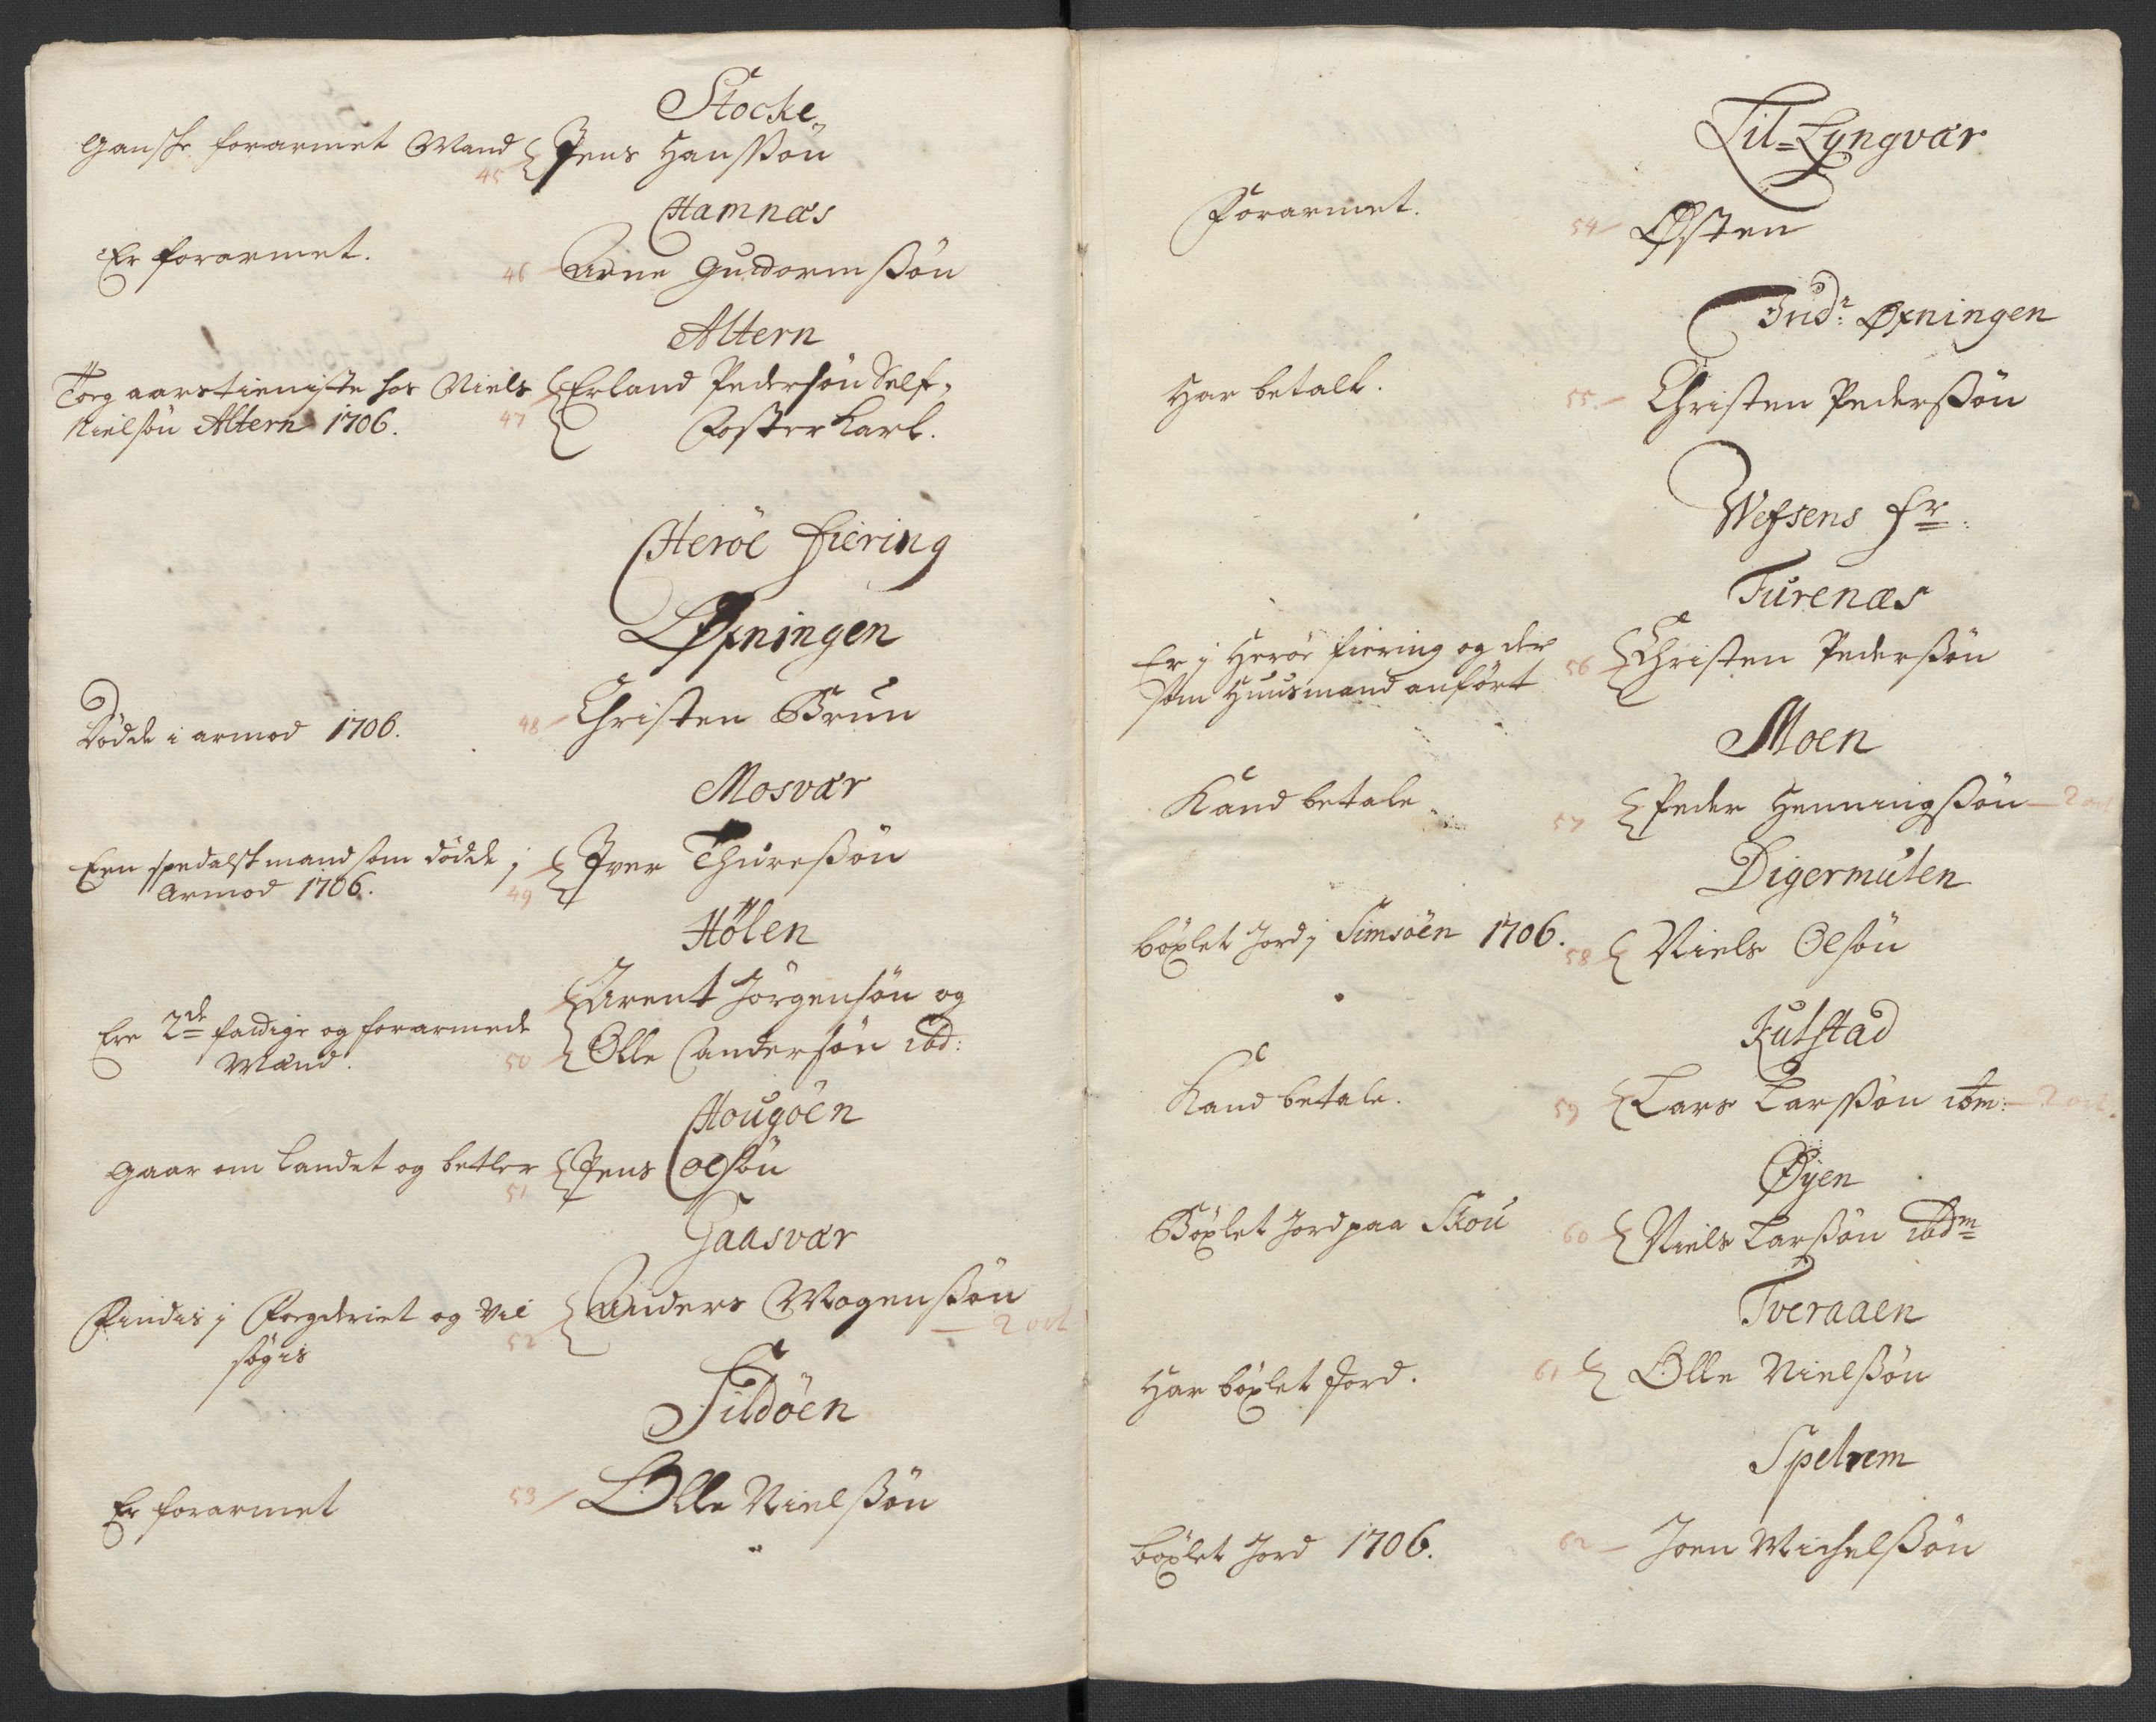 Stocke
Gansche forarmet Mand
45
Jens Hanssøn
Hamnæs
Er forarmet.
46 Arne Guttormssøn
Altern
Tog aarstieniste hos Niels
Nielsøn Altern 1706.
47
Erland Pedersøn Self
Fosterkarl.
Herøe Fiering
Øxningen
Døde i armod 1706.
48 Christen Brun
Mosvær
Een spedalsk mand som døde i
Armod 1706.
49
Iver Thuressøn
Hølen
Ere 2de fattige og forarmede
Mænd.
50
Arent Jørgensøn og
Olle Andersøn ibd:
Hougøen
Gaar om Landet og betler
51
Jens Olsøn
Gaasvær
Findis i Fogderiet og vil
søgis
52
Anders Mogenssøn
— 2 ort
Sildøen
Er forarmet
53 Olle Nielssøn
Til-Lyngvær
Forarmet.
54 Østen
Indr Øxningen
Har betalt.
55 Christen Pederssøn
Wefsens Fr:
Turenæs
Er i Herøe fiering og der
som Huusmand anført
56 Christen Pederssøn
Moen
Kand betale
57 Peder Henningssøn — 2 ort
Digermulen
bøxlet Jord i Simsøen 1706.
58 Niels Olsøn
Kulstad
Kand betale.
59 Lars Larssøn ibm: — 2 ort.
Øyen
Bøxlet Jord paa Skou
60 Niels Larssøn ibdm
Tveraaen
Har bøxlet Jord.
61 Olle Nielssøn
Spelrem
bøxlet Jord 1706.
62 Joen Michelssøn